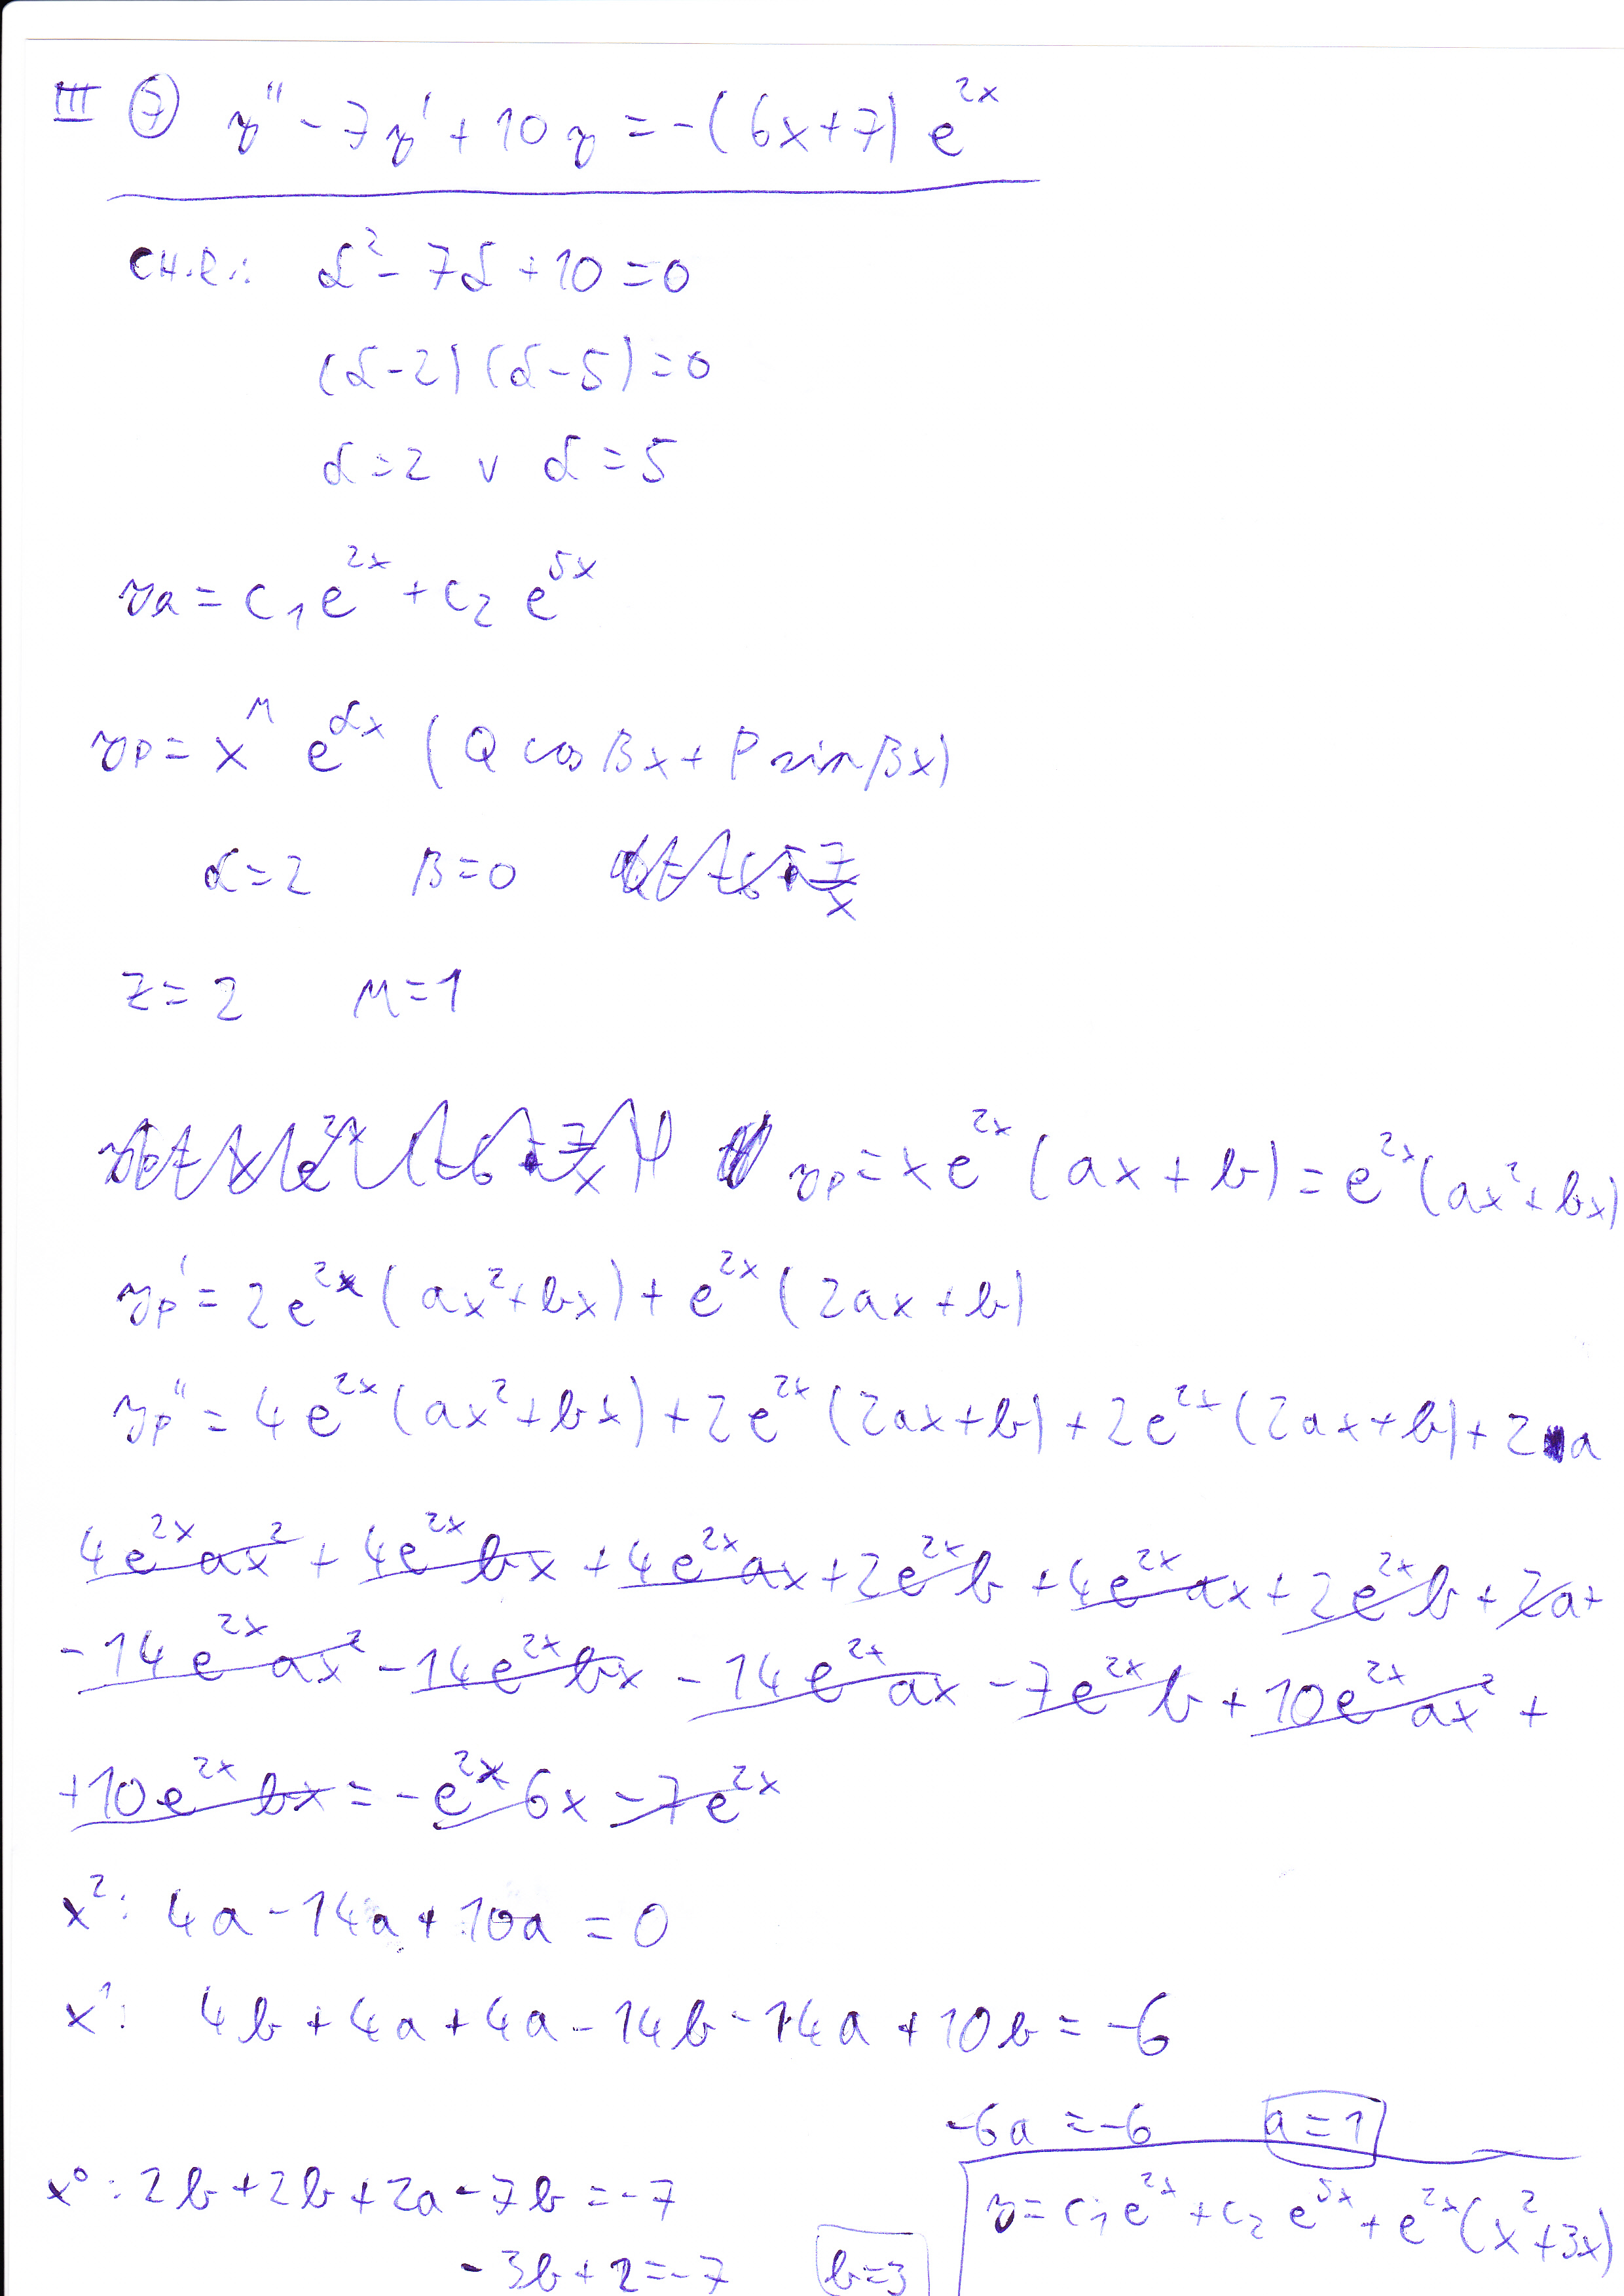 III ⑦ y'' - 7y' + 10y = -(6x+7) e^{2x}
CH.R.: α² - 7α + 10 = 0
(α-2)(α-5) = 0
α = 2 v α = 5
ya = c₁e^{2x} + c₂ e^{5x}
yp = x^M e^{αx} (Q cos βx + P sin βx)
α = 2 β = 0
z = 2 M = 1
yp = xe^{2x} (ax + b) = e^{2x} (ax² + bx)
yp' = 2e^{2x} (ax² + bx) + e^{2x} (2ax + b)
yp'' = 4e^{2x} (ax² + bx) + 2e^{2x} (2ax + b) + 2e^{2x} (2ax + b) + 2a
4e^{2x}ax² + 4e^{2x}bx + 4e^{2x}ax + 2e^{2x}b + 4e^{2x}ax + 2e^{2x}b + 2a +
-14e^{2x}ax² - 14e^{2x}bx - 14e^{2x}ax - 7e^{2x}b + 10e^{2x}ax² +
+10e^{2x}bx = -e^{2x}6x - 7e^{2x}
x²: 4a - 14a + 10a = 0
x¹: 4b + 4a + 4a - 14b - 14a + 10b = -6
-6a = -6 a = 1
x⁰: 2b + 2b + 2a - 7b = -7
-3b + 2 = -7 b = 3
y = c₁e^{2x} + c₂ e^{5x} + e^{2x}(x² + 3x)